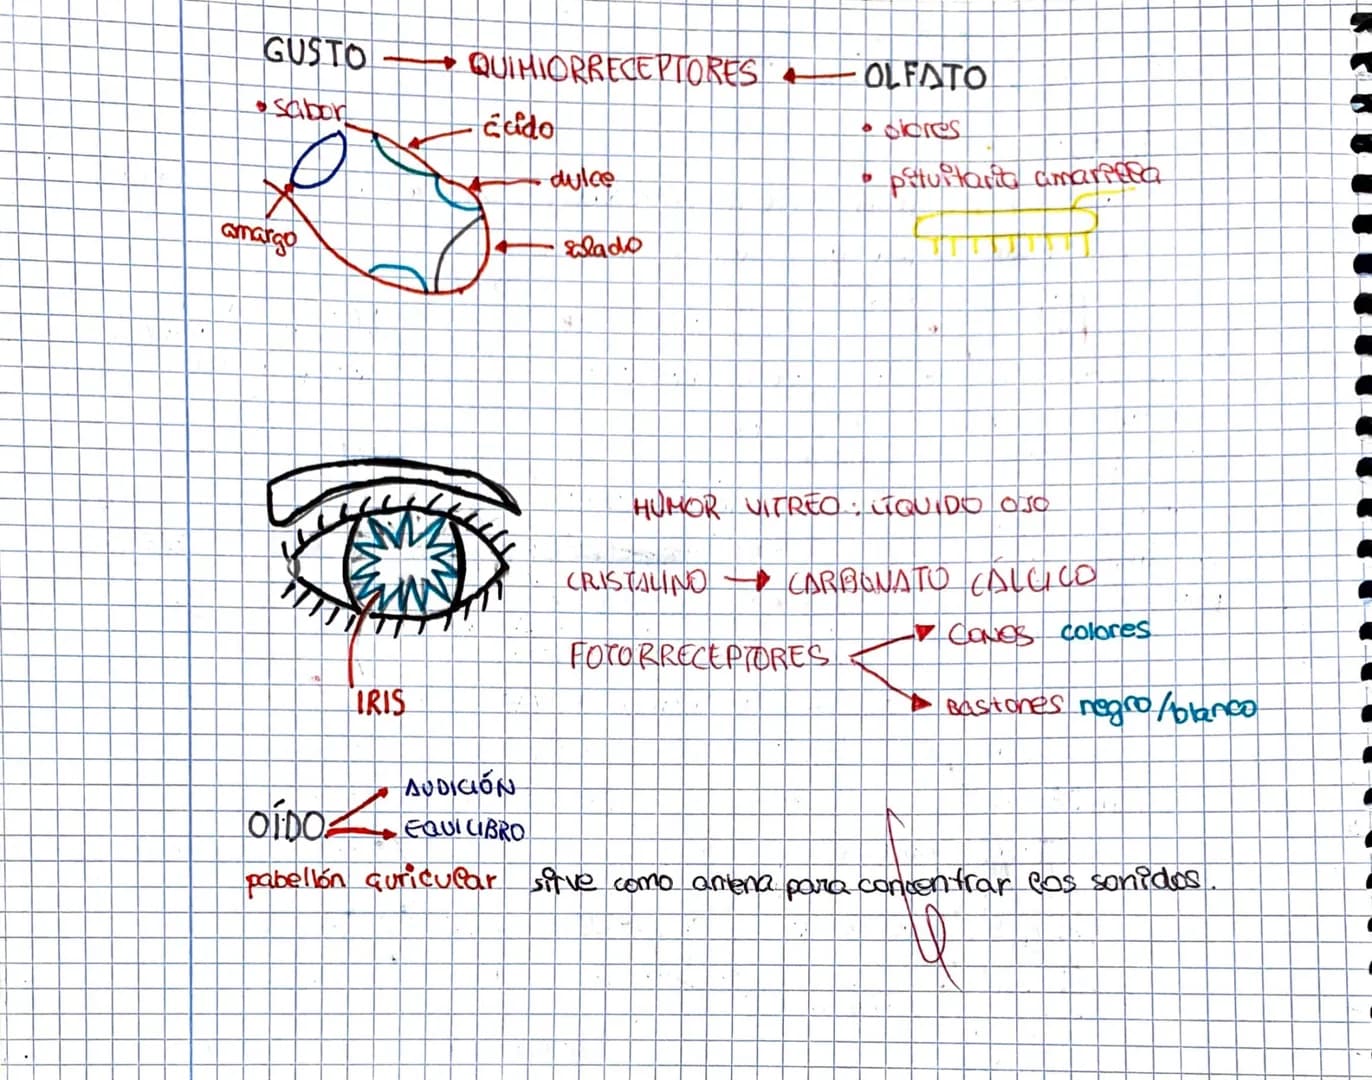 GUSTO → QUIMIORRECEPTORES ← OLFATO
• sabor
ácido
• olores
dulce
• pituitaria amarilla
amargo
salado
HUMOR VITREO : LÍQUIDO OJO
CRISTALINO → CARBONATO CÁLCICO
FOTORRECEPTORES
CONOS colores
BASTONES negro/blanco
IRIS
OÍDO
AUDICIÓN
EQUILIBRO
pabellón auricular sirve como antena para concentrar los sonidos.